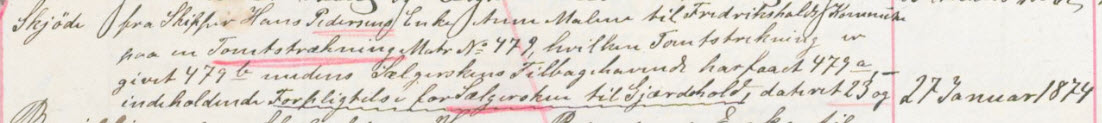 Skjöde fra Skipper Hans Pedersens Enke Anne Malene til Fredrikshalds Kommune
paa en Tomtstrækning Matr No 479, hvilken Tomtstrekning er
givet 479 b medens Sælgerskens Tilbagehavende har faaet 479 a
indeholdende Forpligtelse for Sælgersken til Gjærdehold, dateret 23 og 27 Januar 1874